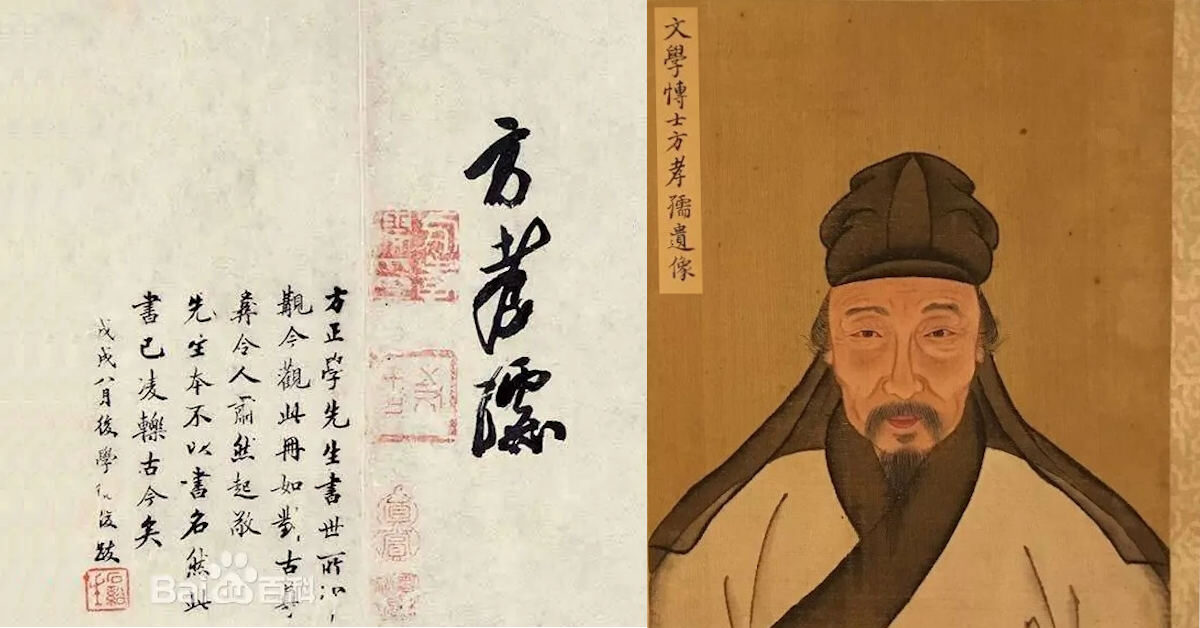 方孝孺
方正學先生書世所
覯今觀此冊如對古尊
彝令人肅然起敬
先生本不以書名然此
書已凌轢古今矣
戊戌八月後學 俊跋
Bai百科
文學愽士方孝孺遺像